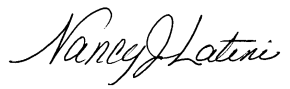 Nancy J Latini